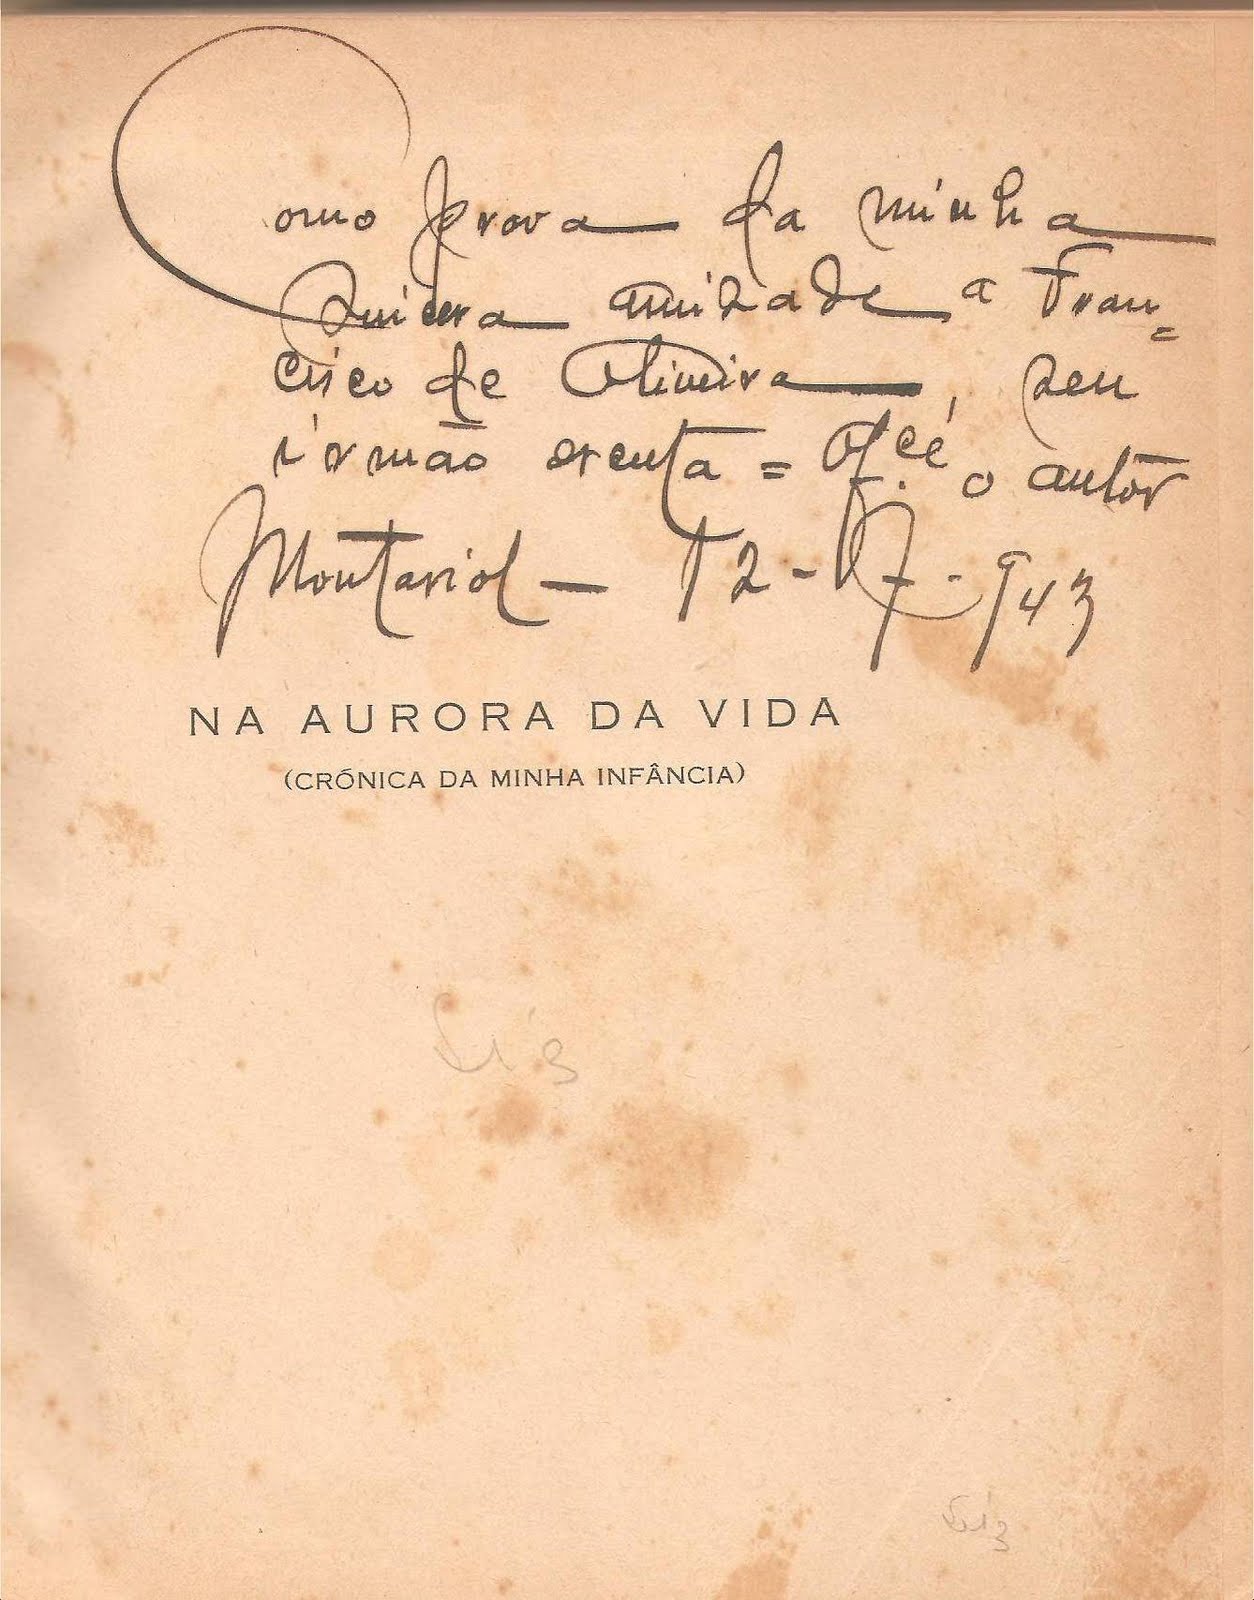 Como prova da minha
sincera amizade a Fran=
cisco de Oliveira, seu
irmão = of.ce o autor
Montariol - 12-7-943
NA AURORA DA VIDA
(CRÓNICA DA MINHA INFÂNCIA)